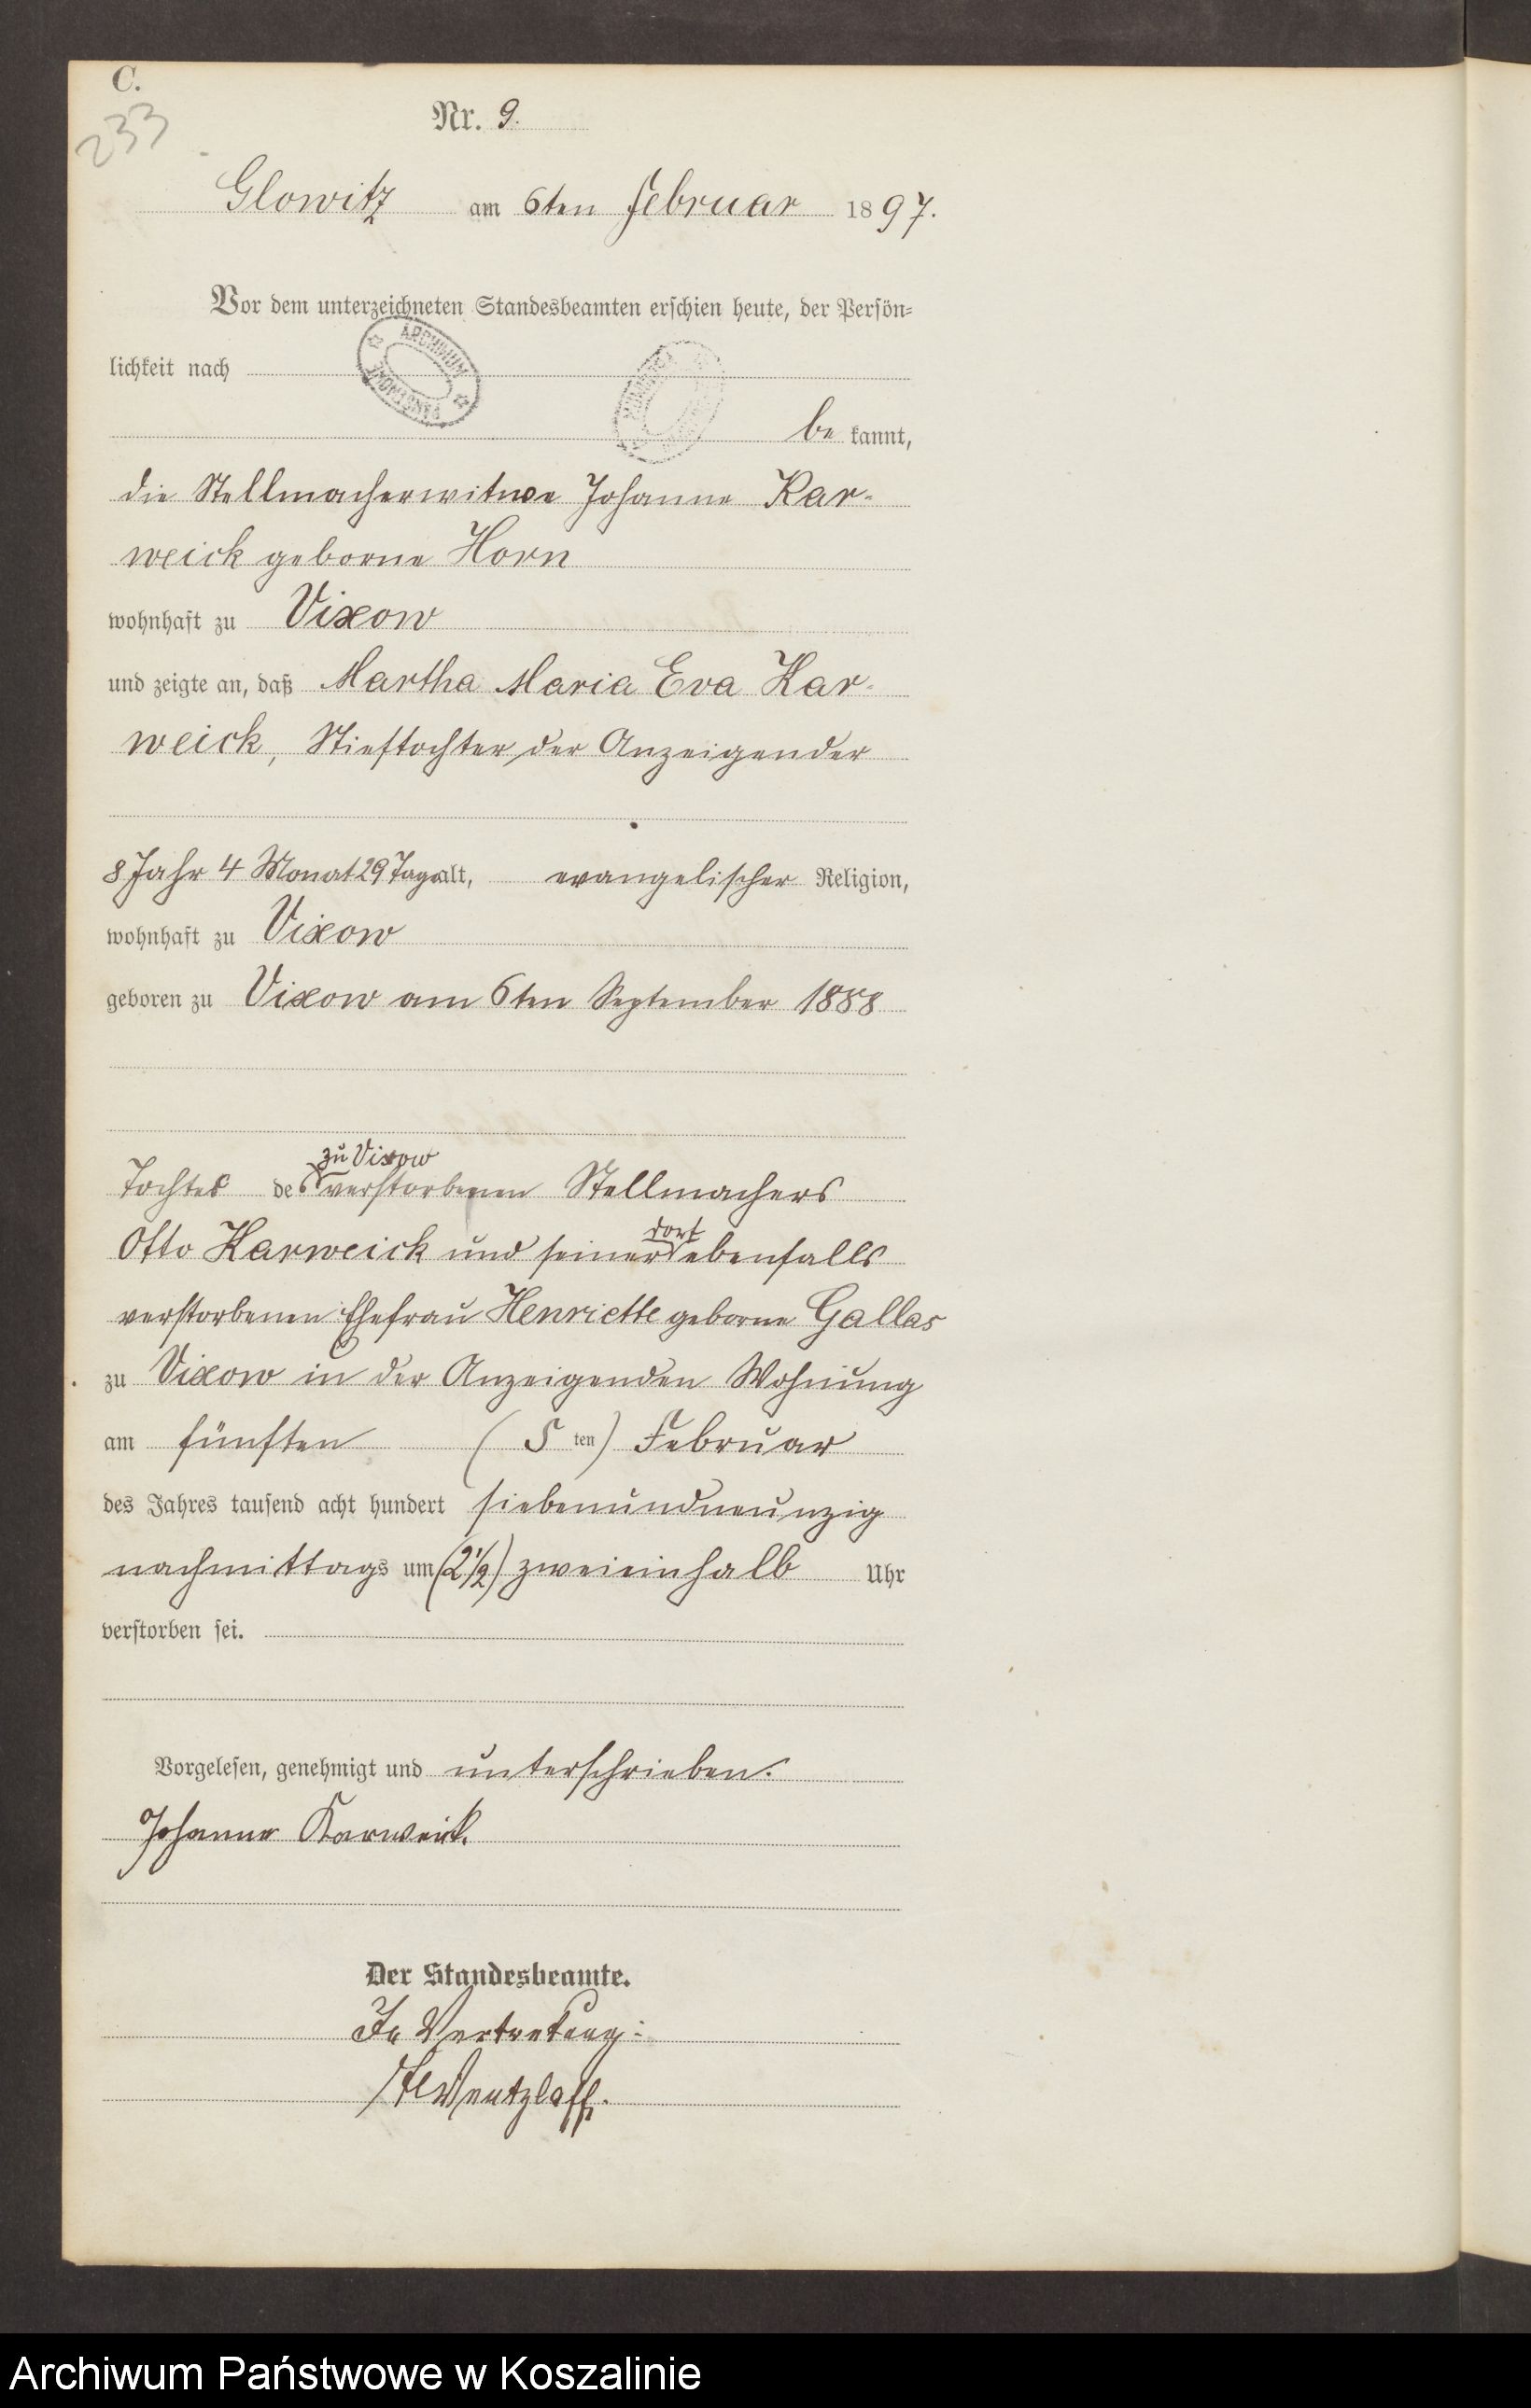 C.
233
Nr. 9.
Glowitz am 6ten Februar 1897.
Vor dem unterzeichneten Standesbeamten erschien heute, der Persön-
lichkeit nach
ARCHIWUM
be kannt,
die Stellmacherwitwe Johanne Kar-
weick geborne Horn
wohnhaft zu Vixow
und zeigte an, daß Martha Maria Eva Kar-
weick, Stieftochter der Anzeigender
8 Jahr 4 Monat 29 Tage alt, evangelischer Religion,
wohnhaft zu Vixow
geboren zu Vixow am 6ten September 1888
zu Vixow
Tochter des verstorbenen Stellmachers
dort
Otto Karweick und seiner ebenfalls
verstorbenen Ehefrau Henriette geborne Gallas
zu Vixow in der Anzeigenden Wohnung
am fünften (5 ten) Februar
des Jahres tausend acht hundert siebenundneunzig
nachmittags um (2 1/2) zweieinhalb Uhr
verstorben sei.
Vorgelesen, genehmigt und unterschrieben.
Johanne Karweick.
Der Standesbeamte.
In Vertretung:
Wentzlaff.
Archiwum Państwowe w Koszalinie